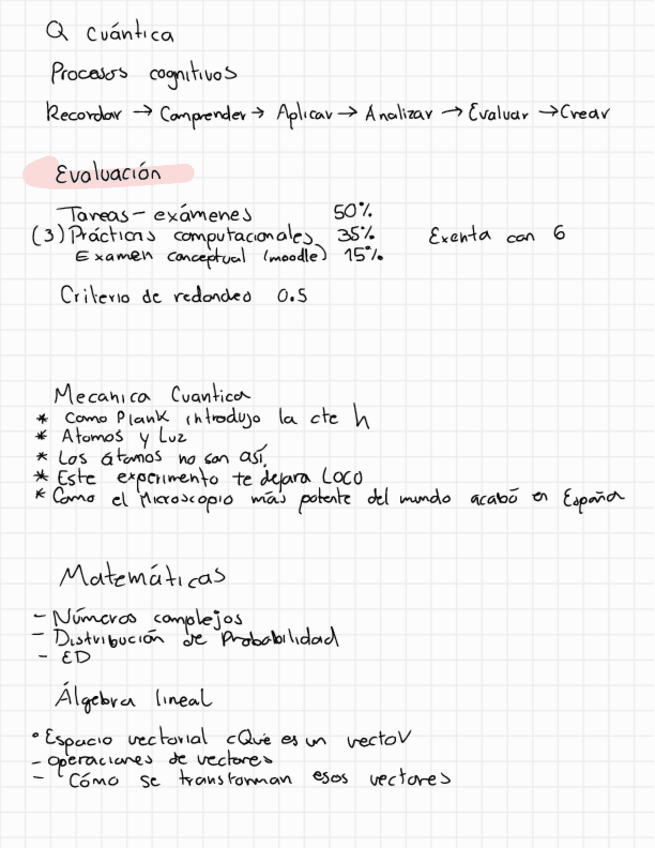 Q Cuántica
Procesos cognitivos
Recordar → Comprender → Aplicar → Analizar → Evaluar → Crear
Evaluación
Tareas - exámenes 50%
(3) Prácticas computacionales 35% Exenta con 6
Examen conceptual (moodle) 15%
Criterio de redondeo 0.5
Mecanica Cuantica
* Como Plank introdujo la cte h
* Atomos y Luz
* Los átomos no son así
* Este experimento te dejara LOCO
* Como el Microscopio más potente del mundo acabó en España
Matemáticas
- Números complejos
- Distribución de Probabilidad
- ED
Álgebra lineal
• Espacio vectorial ¿Qué es un vector
- operaciones de vectores
- Cómo se transforman esos vectores